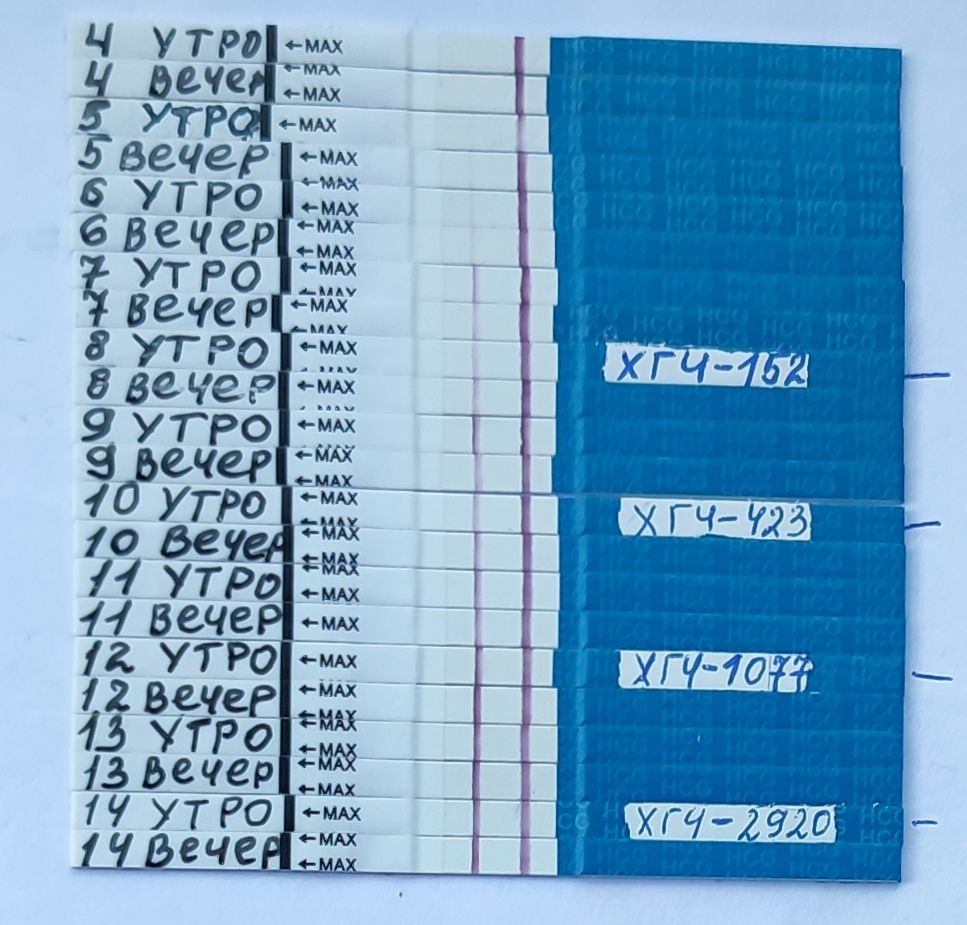 4 УТРО ←MAX HCG
←MAX
4 Вечер ←MAX
5 УТРО ←MAX
5 Вечер ←MAX
←MAX
6 УТРО ←MAX
←MAX
6 Вечер ←MAX
7 УТРО ←MAX
←MAX
7 Вечер ←MAX
←MAX
8 УТРО ←MAX ХГЧ-152
8 Вечер ←MAX
9 УТРО ←MAX
←MAX
9 Вечер ←MAX
10 УТРО ←MAX ХГЧ-423
←MAX
10 Вечер ←MAX
←MAX
←MAX
11 УТРО ←MAX
11 Вечер ←MAX
12 УТРО ←MAX ХГЧ-1077
12 Вечер ←MAX
←MAX
←MAX
13 УТРО ←MAX
←MAX
13 Вечер ←MAX
14 УТРО ←MAX ХГЧ-2920
←MAX
14 Вечер ←MAX